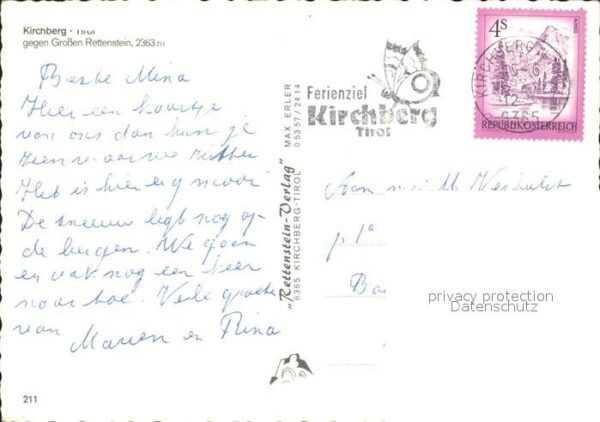 Kirchberg - Tirol
gegen Großen Rettenstein, 2363 m
Beste Mina
Hier een kaartje
van ons dan kun je
zien waar we zitten
Het is hier erg mooi
De sneeuw ligt nog op
de bergen. We gaan
er vak nog een keer
naar toe. Vele groeten
van
Marien en Rina
211
MAX ERLER
05357/2414
"Rettenstein-Verlag"
6365 KIRCHBERG-TIROL
Ferienziel
Kirchberg
Tirol
4S
REPUBLIK ÖSTERREICH
KIRCHBERG
6365
Aan
privacy protection
Datenschutz